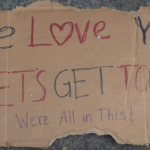 e LOVE Y
ETS GET TO
We're All in This!